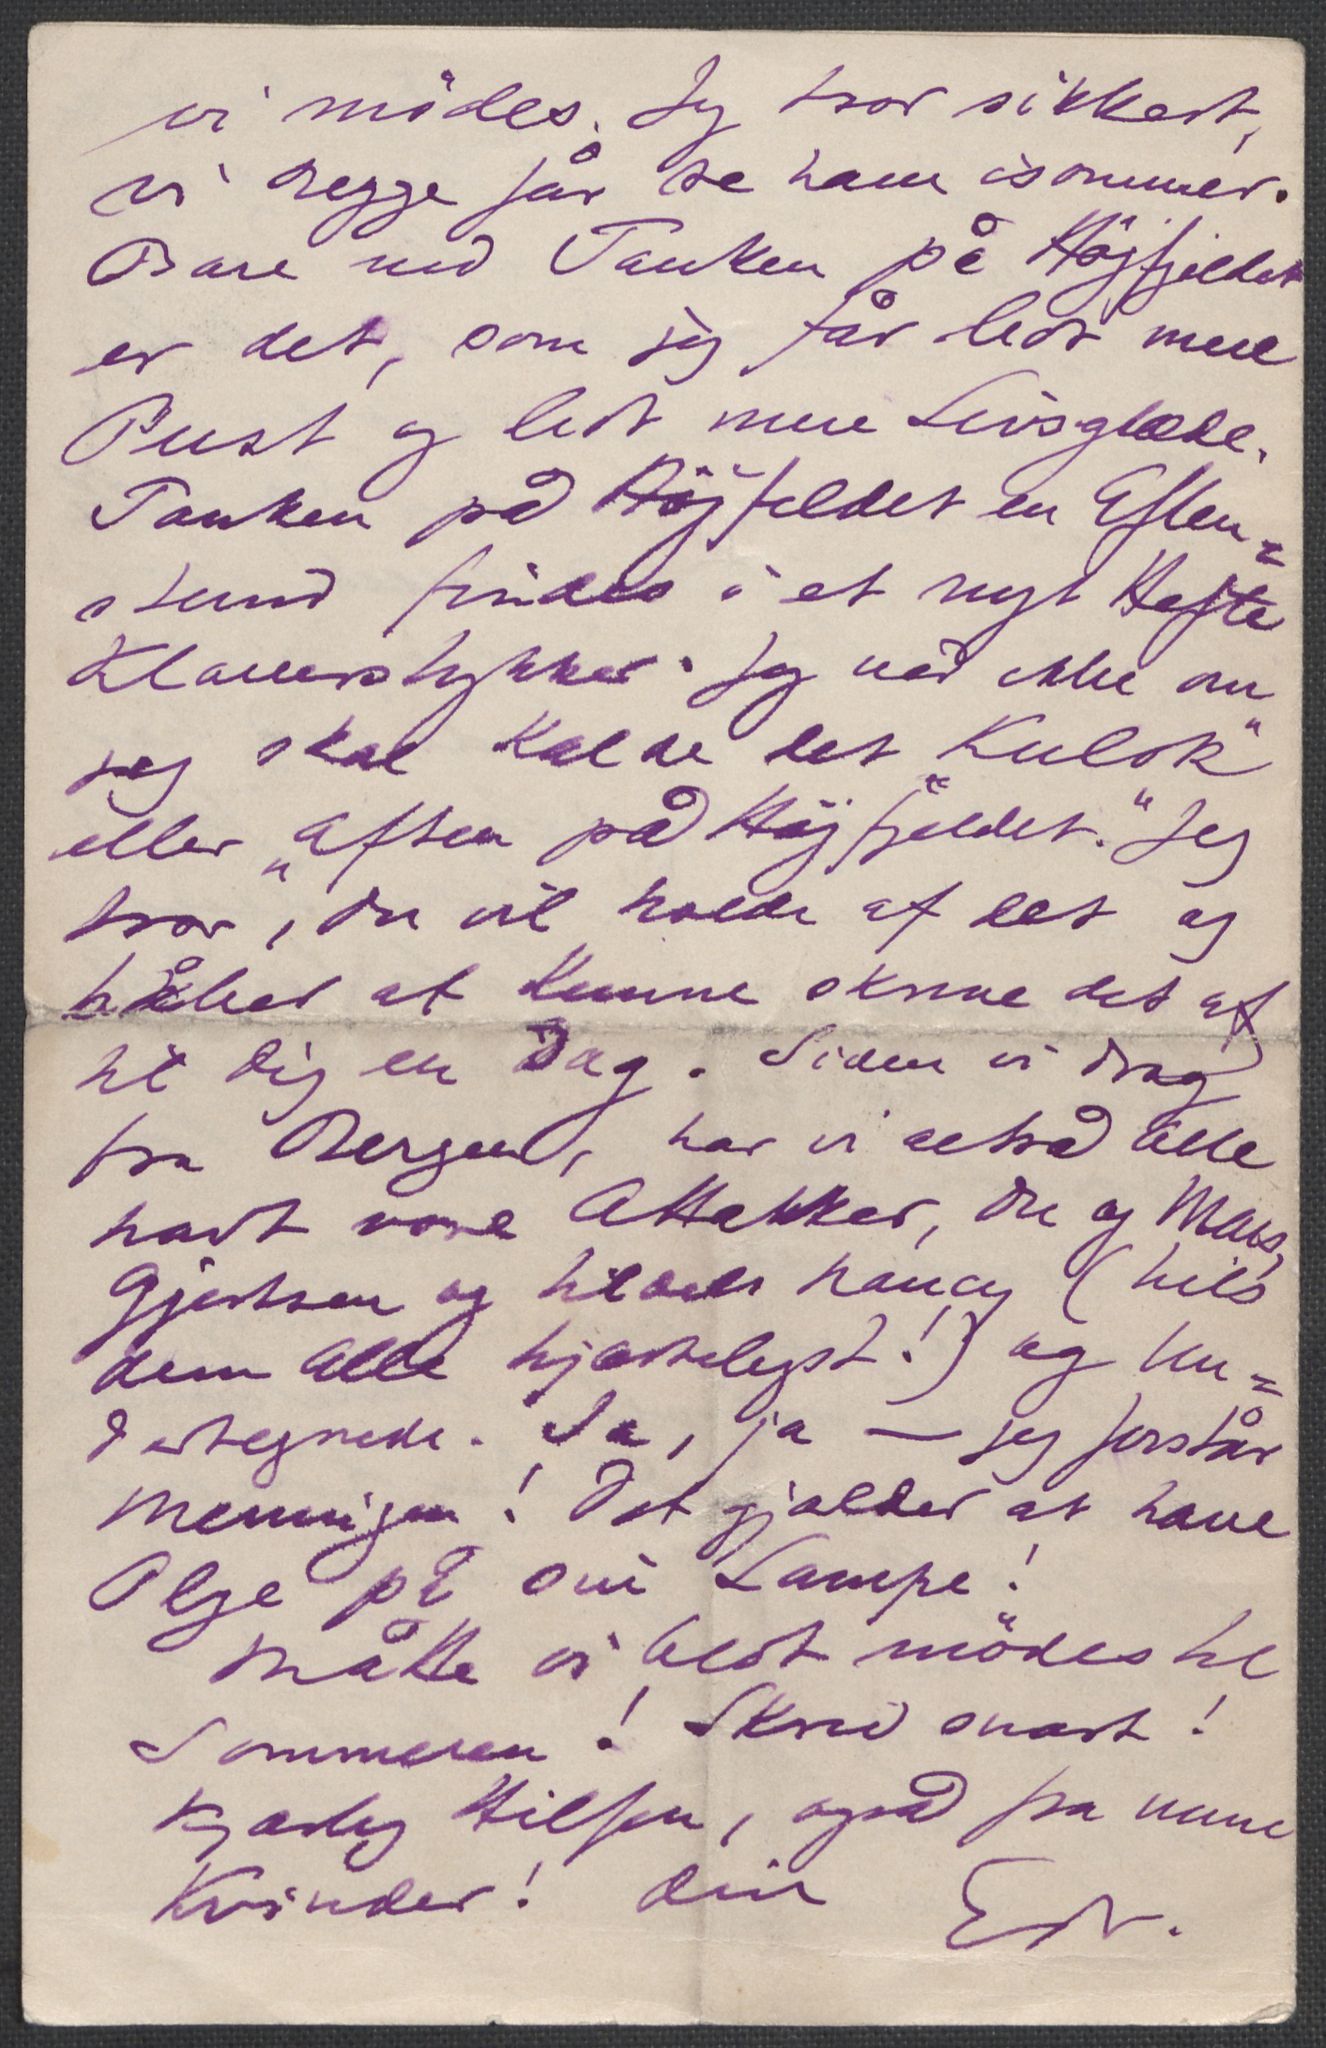 vi mödes. Jeg tror sikkert,
vi begge får se ham isommer.
Bare ved Tanken på Højfjeldet
er det, som jeg får lidt mere
Pust og lidt mere Livsglæde.
Tanken på Højfjeldet en Aften=
stund findes i et nyt Hefte
Klaverstykker. Jeg ved ikke om
jeg skal kalde det „Kulok"
eller „Aften på Højfjeldet." Jeg
tror, du vil holde af det og
håber at kunne skrive det af
til dig en Dag. Siden vi drog
fra Bergen, har vi altså alle
havt vore Attakker, du og Mais,
Gjertsen og tildels Nancy (hils
dem alle hjerteligst!) og Un=
dertegnede. Ja, ja – jeg forstår
Meningen! Det gjælder at have
Olje på sin Lampe!
Måtte vi blot mödes til
Sommeren! Skriv snart!
Kjærlig Hilsen, også fra mine
Kvinder! din Edv.